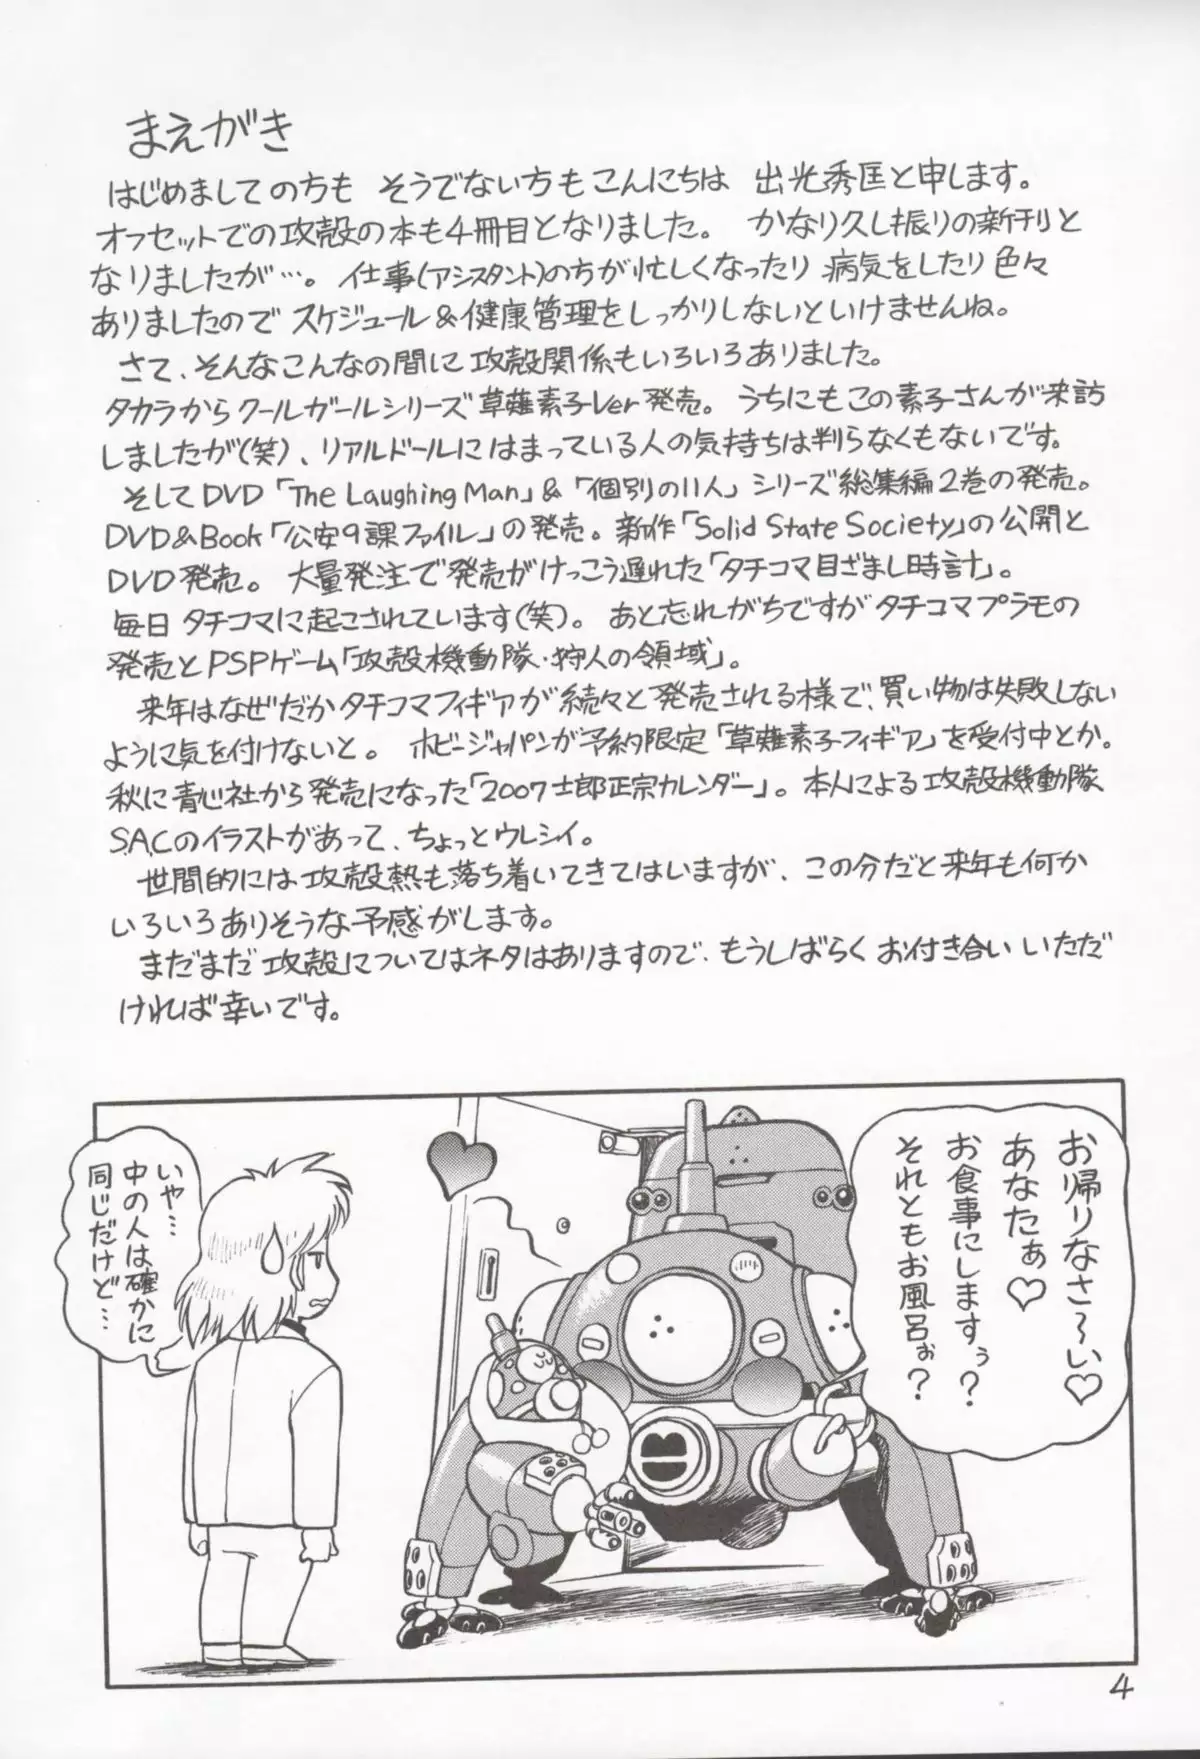 まえがき
はじめましての方も そうでない方もこんにちは 出光秀匡と申します。
オフセットでの攻殻の本も4冊目となりました。 かなり久し振りの新刊と
なりましたが…。 仕事(アシスタント)の方が忙しくなったり 病気をしたり 色々
ありましたので スケジュール&健康管理をしっかりしないといけませんね。
さて、そんなこんなの間に 攻殻関係もいろいろありました。
タカラからクールガールシリーズ草薙素子Ver発売。 うちにもこの素子さんが来訪
しましたが(笑)、リアルドールにはまっている人の気持ちは判らなくもないです。
そしてDVD「The Laughing Man」&「個別の11人」シリーズ総集編2巻の発売。
DVD&Book「公安9課ファイル」の発売。新作「Solid State Society」の公開と
DVD発売。 大量発注で発売がけっこう遅れた「タチコマ目ざまし時計」。
毎日タチコマに起こされています(笑)。 あと忘れがちですがタチコマプラモの
発売とPSPゲーム「攻殻機動隊・狩人の領域」。
来年はなぜだかタチコマフィギアが続々と発売される様で、買い物は失敗しない
ように気を付けないと。 ホビージャパンが予約限定「草薙素子フィギア」を受付中とか。
秋に青心社から発売になった「2007士郎正宗カレンダー」。本人による攻殻機動隊
S.A.C のイラストがあって、ちょっとウレシイ。
世間的には攻殻熱も落ち着いてきてはいますが、この分だと来年も何か
いろいろありそうな予感がします。
まだまだ攻殻についてはネタはありますので、もうしばらくお付き合い いただ
ければ幸いです。
お帰りなさ〜い♡
あなたぁ♡
お食事にしますぅ?
それともお風呂ぉ?
いや…
中の人は確かに
同じだけど…
4